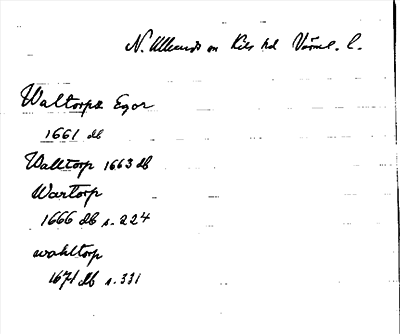 N. Ullerud sn Kils hd Värml. l.
Waltorps Egor
1661 db
Walltorp 1663 db
Wartorp
1666 db s. 224
wahltorp
1671 db s. 331